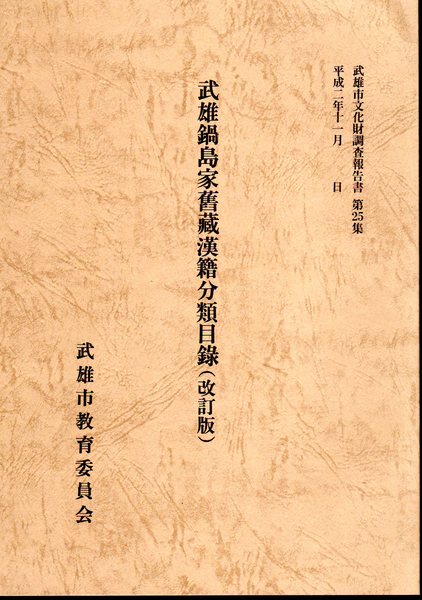 武雄市文化財調査報告書 第25集
平成二年十一月　日
武雄鍋島家舊藏漢籍分類目錄(改訂版)
武雄市教育委員会